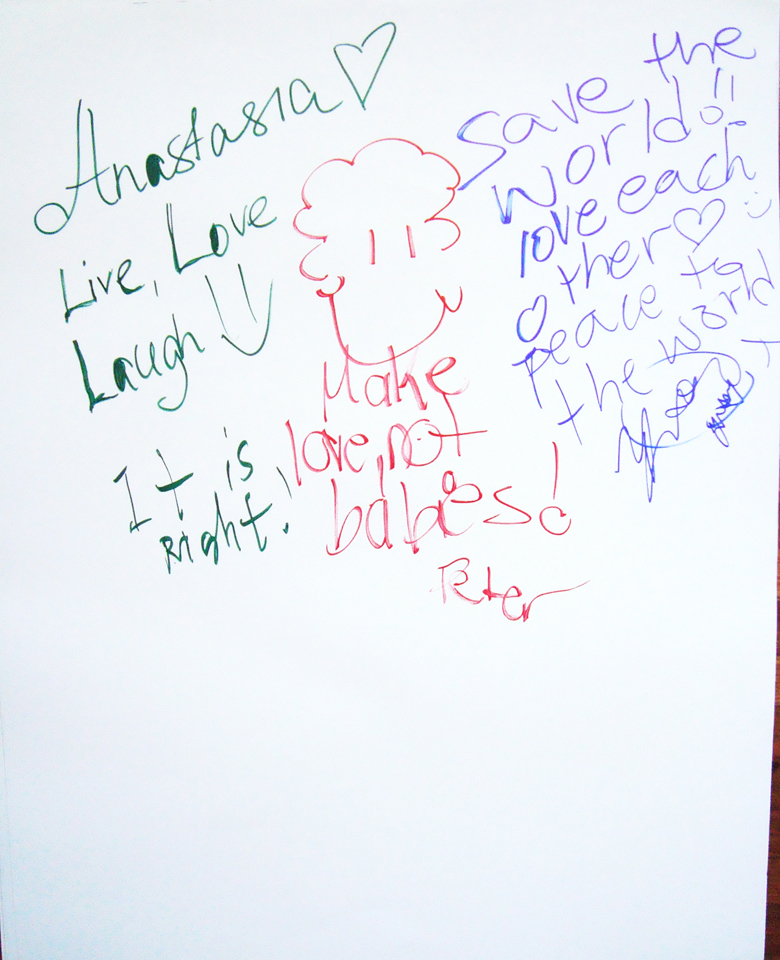 Anastasia
Live, Love
Laugh
It is
Right!
Make
love, not
babies!
Peter
Save the
world!!
love each
other
peace to
the world